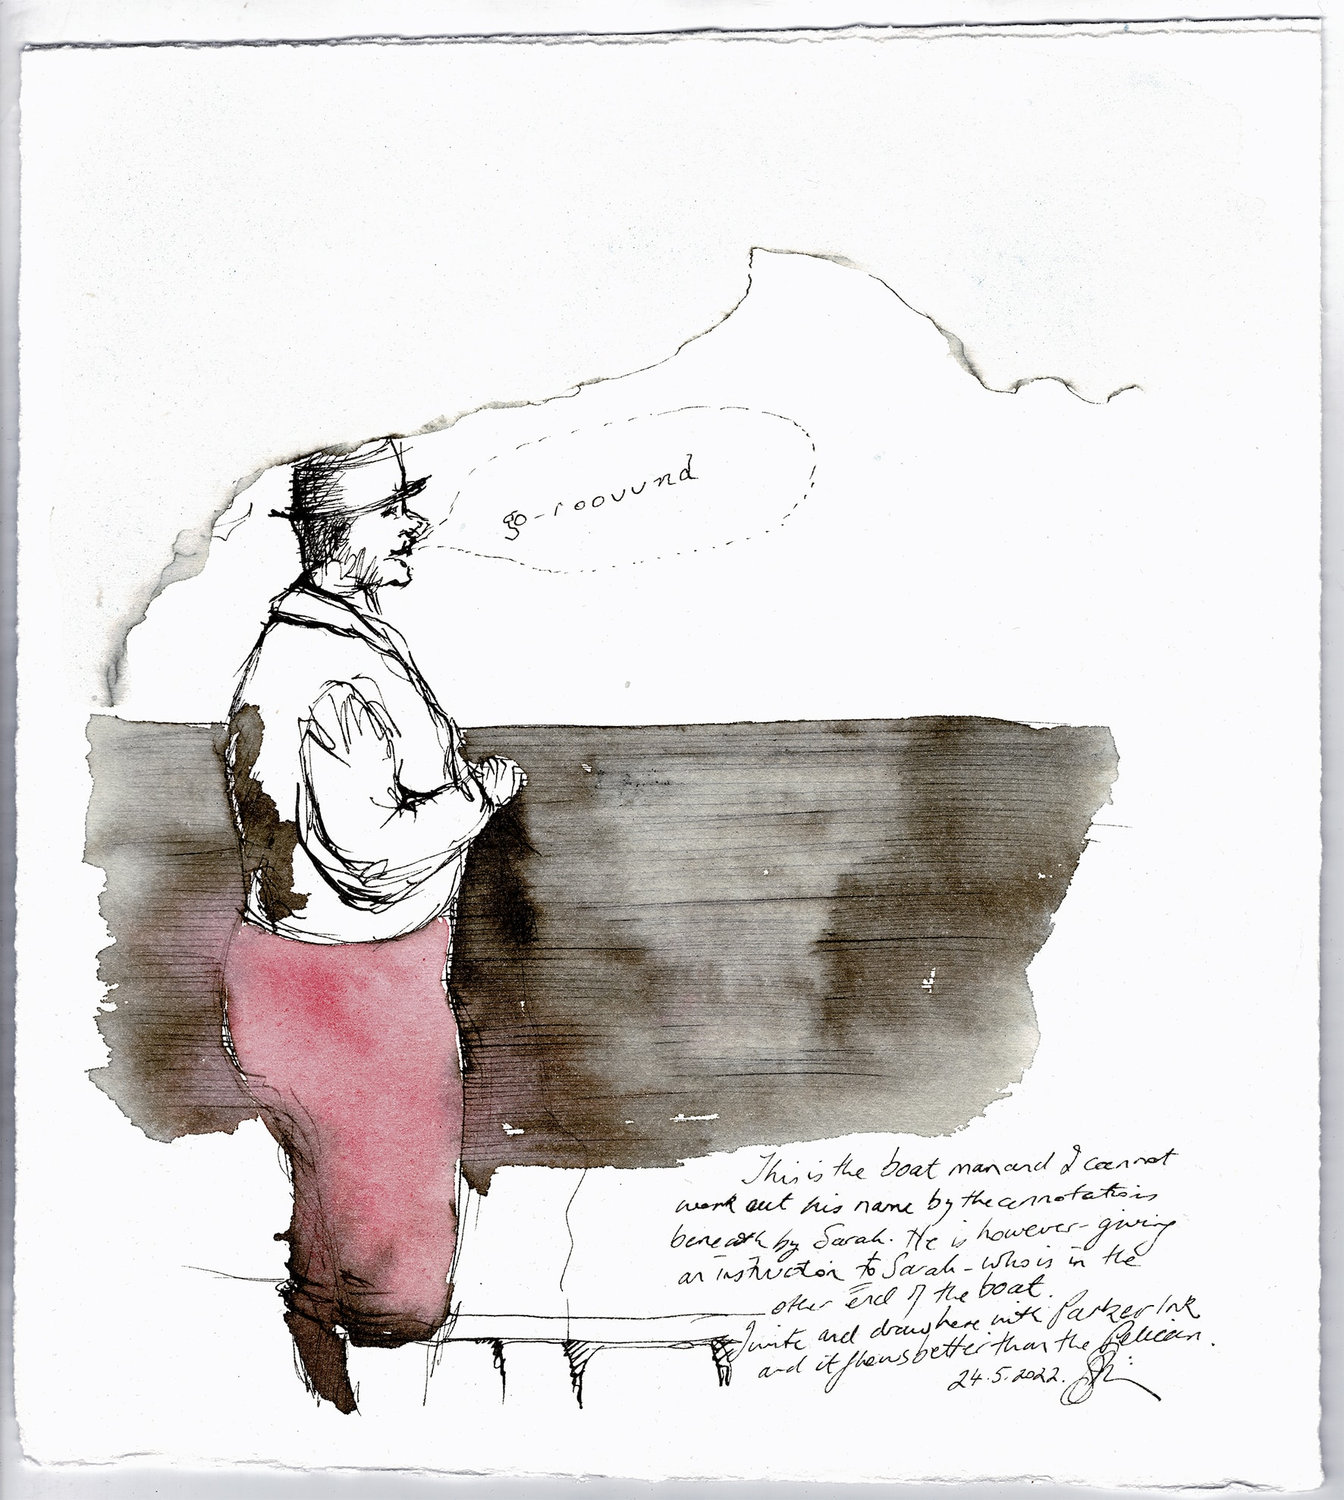 go-roouund
This is the boat man and I cannot
work out his name by the annotations
beneath by Sarah. He is however - giving
an instruction to Sarah - who is in the
other end of the boat.
I write and draw here with Parker Ink
and it flows better than the Pelican.
24.5.2022.